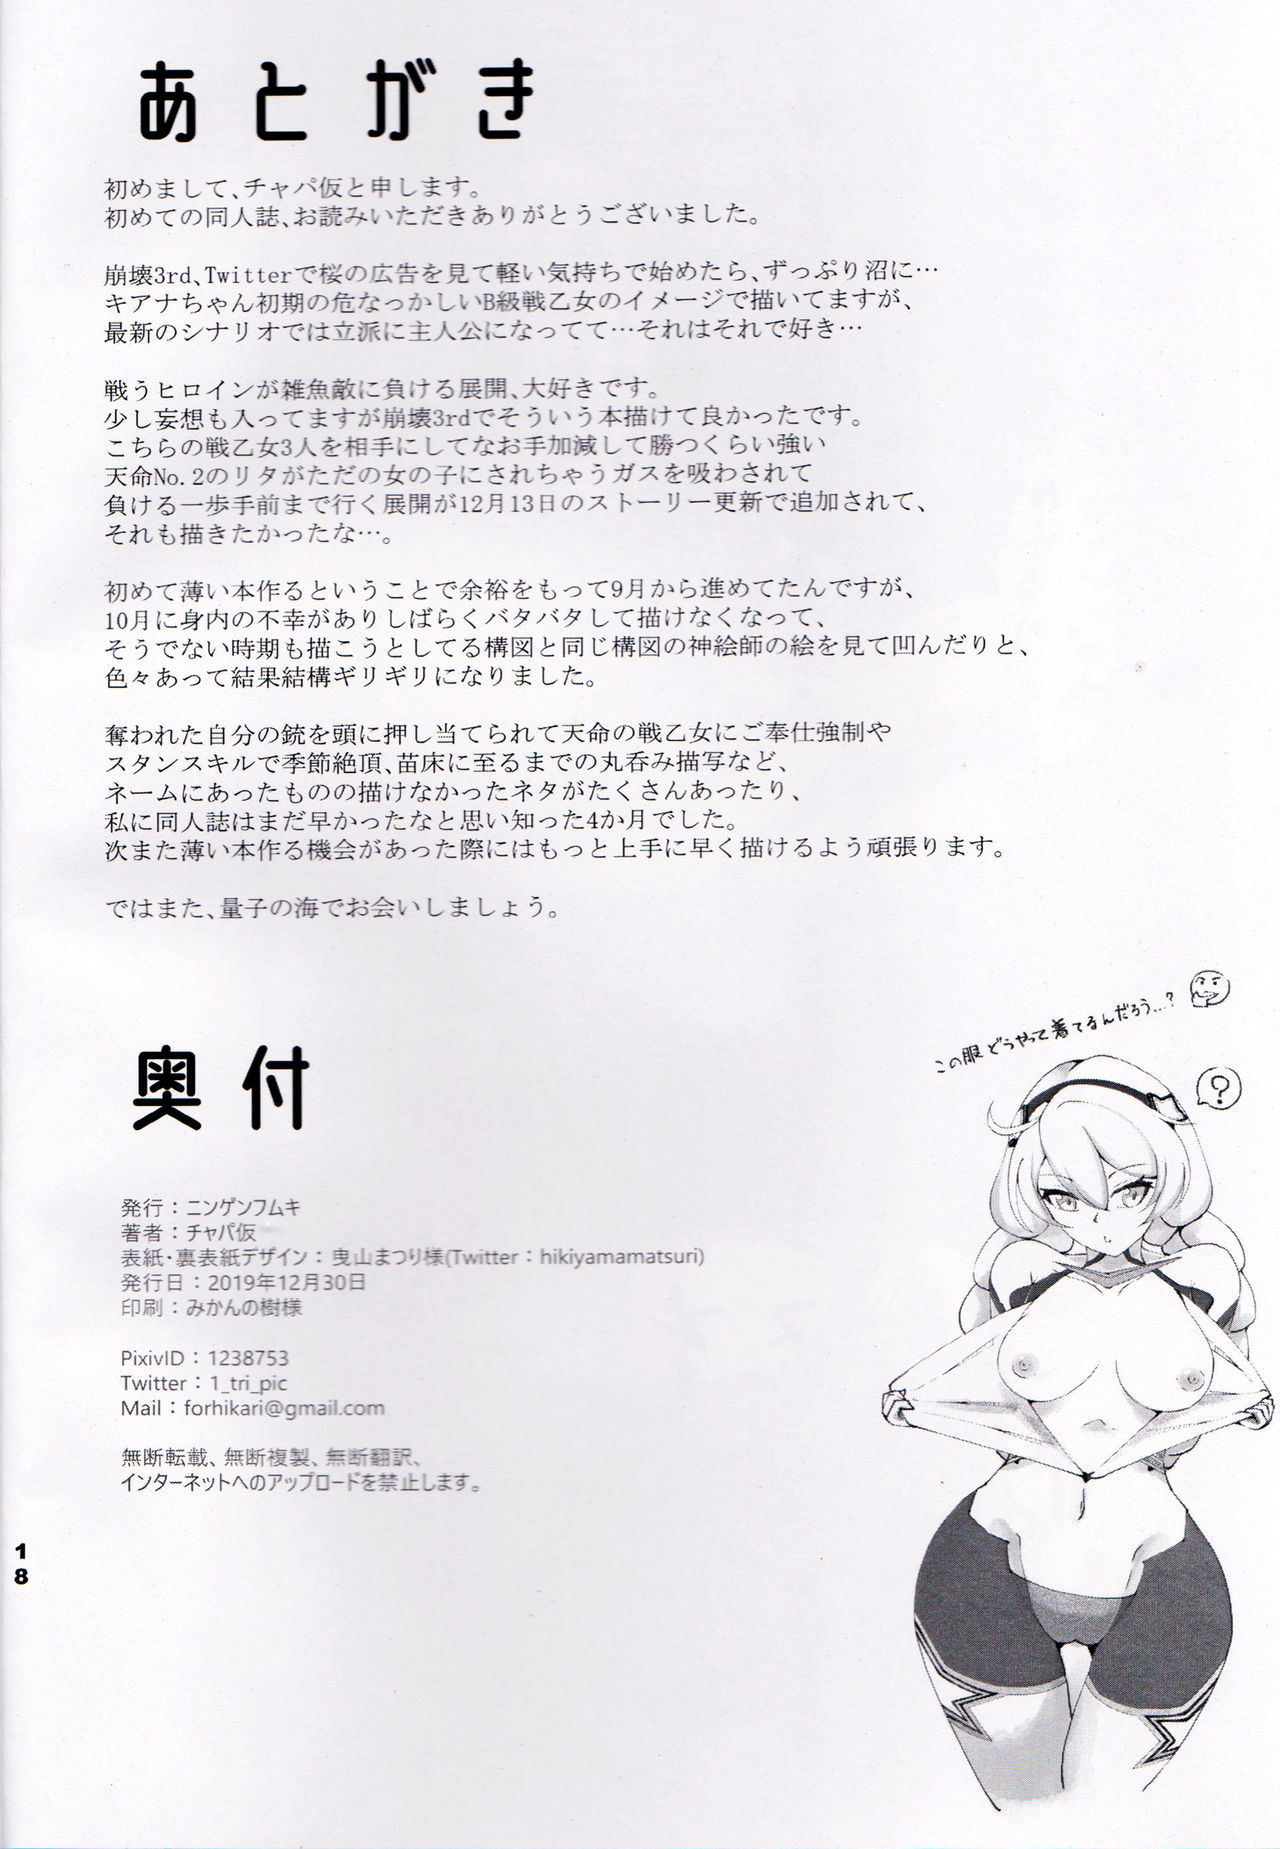 あとがき
初めまして、チャパ仮と申します。
初めての同人誌、お読みいただきありがとうございました。
崩壊3rd、Twitterで桜の広告を見て軽い気持ちで始めたら、ずっぷり沼に…
キアナちゃん初期の危なっかしいB級戦乙女のイメージで描いてますが、
最新のシナリオでは立派に主人公になってて…それはそれで好き…
戦うヒロインが雑魚敵に負ける展開、大好きです。
少し妄想も入ってますが崩壊3rdでそういう本描けて良かったです。
こちらの戦乙女3人を相手にしてなお手加減して勝つくらい強い
天命No.2のリタがただの女の子にされちゃうガスを吸わされて
負ける一歩手前まで行く展開が12月13日のストーリー更新で追加されて、
それも描きたかったな…。
初めて薄い本作るということで余裕をもって9月から進めてたんですが、
10月に身内の不幸がありしばらくバタバタして描けなくなって、
そうでない時期も描こうとしてる構図と同じ構図の神絵師の絵を見て凹んだりと、
色々あって結果結構ギリギリになりました。
奪われた自分の銃を頭に押し当てられて天命の戦乙女にご奉仕強制や
スタンスキルで季節絶頂、苗床に至るまでの丸呑み描写など、
ネームにあったものの描けなかったネタがたくさんあったり、
私に同人誌はまだ早かったなと思い知った4か月でした。
次また薄い本作る機会があった際にはもっと上手に早く描けるよう頑張ります。
ではまた、量子の海でお会いしましょう。
この服どうやって着てるんだろう…?
?
奥付
発行：ニンゲンフムキ
著者：チャパ仮
表紙・裏表紙デザイン：曳山まつり様(Twitter：hikiyamamatsuri)
発行日：2019年12月30日
印刷：みかんの樹様
PixivID：1238753
Twitter：1_tri_pic
Mail：forhikari@gmail.com
無断転載、無断複製、無断翻訳、
インターネットへのアップロードを禁止します。
18